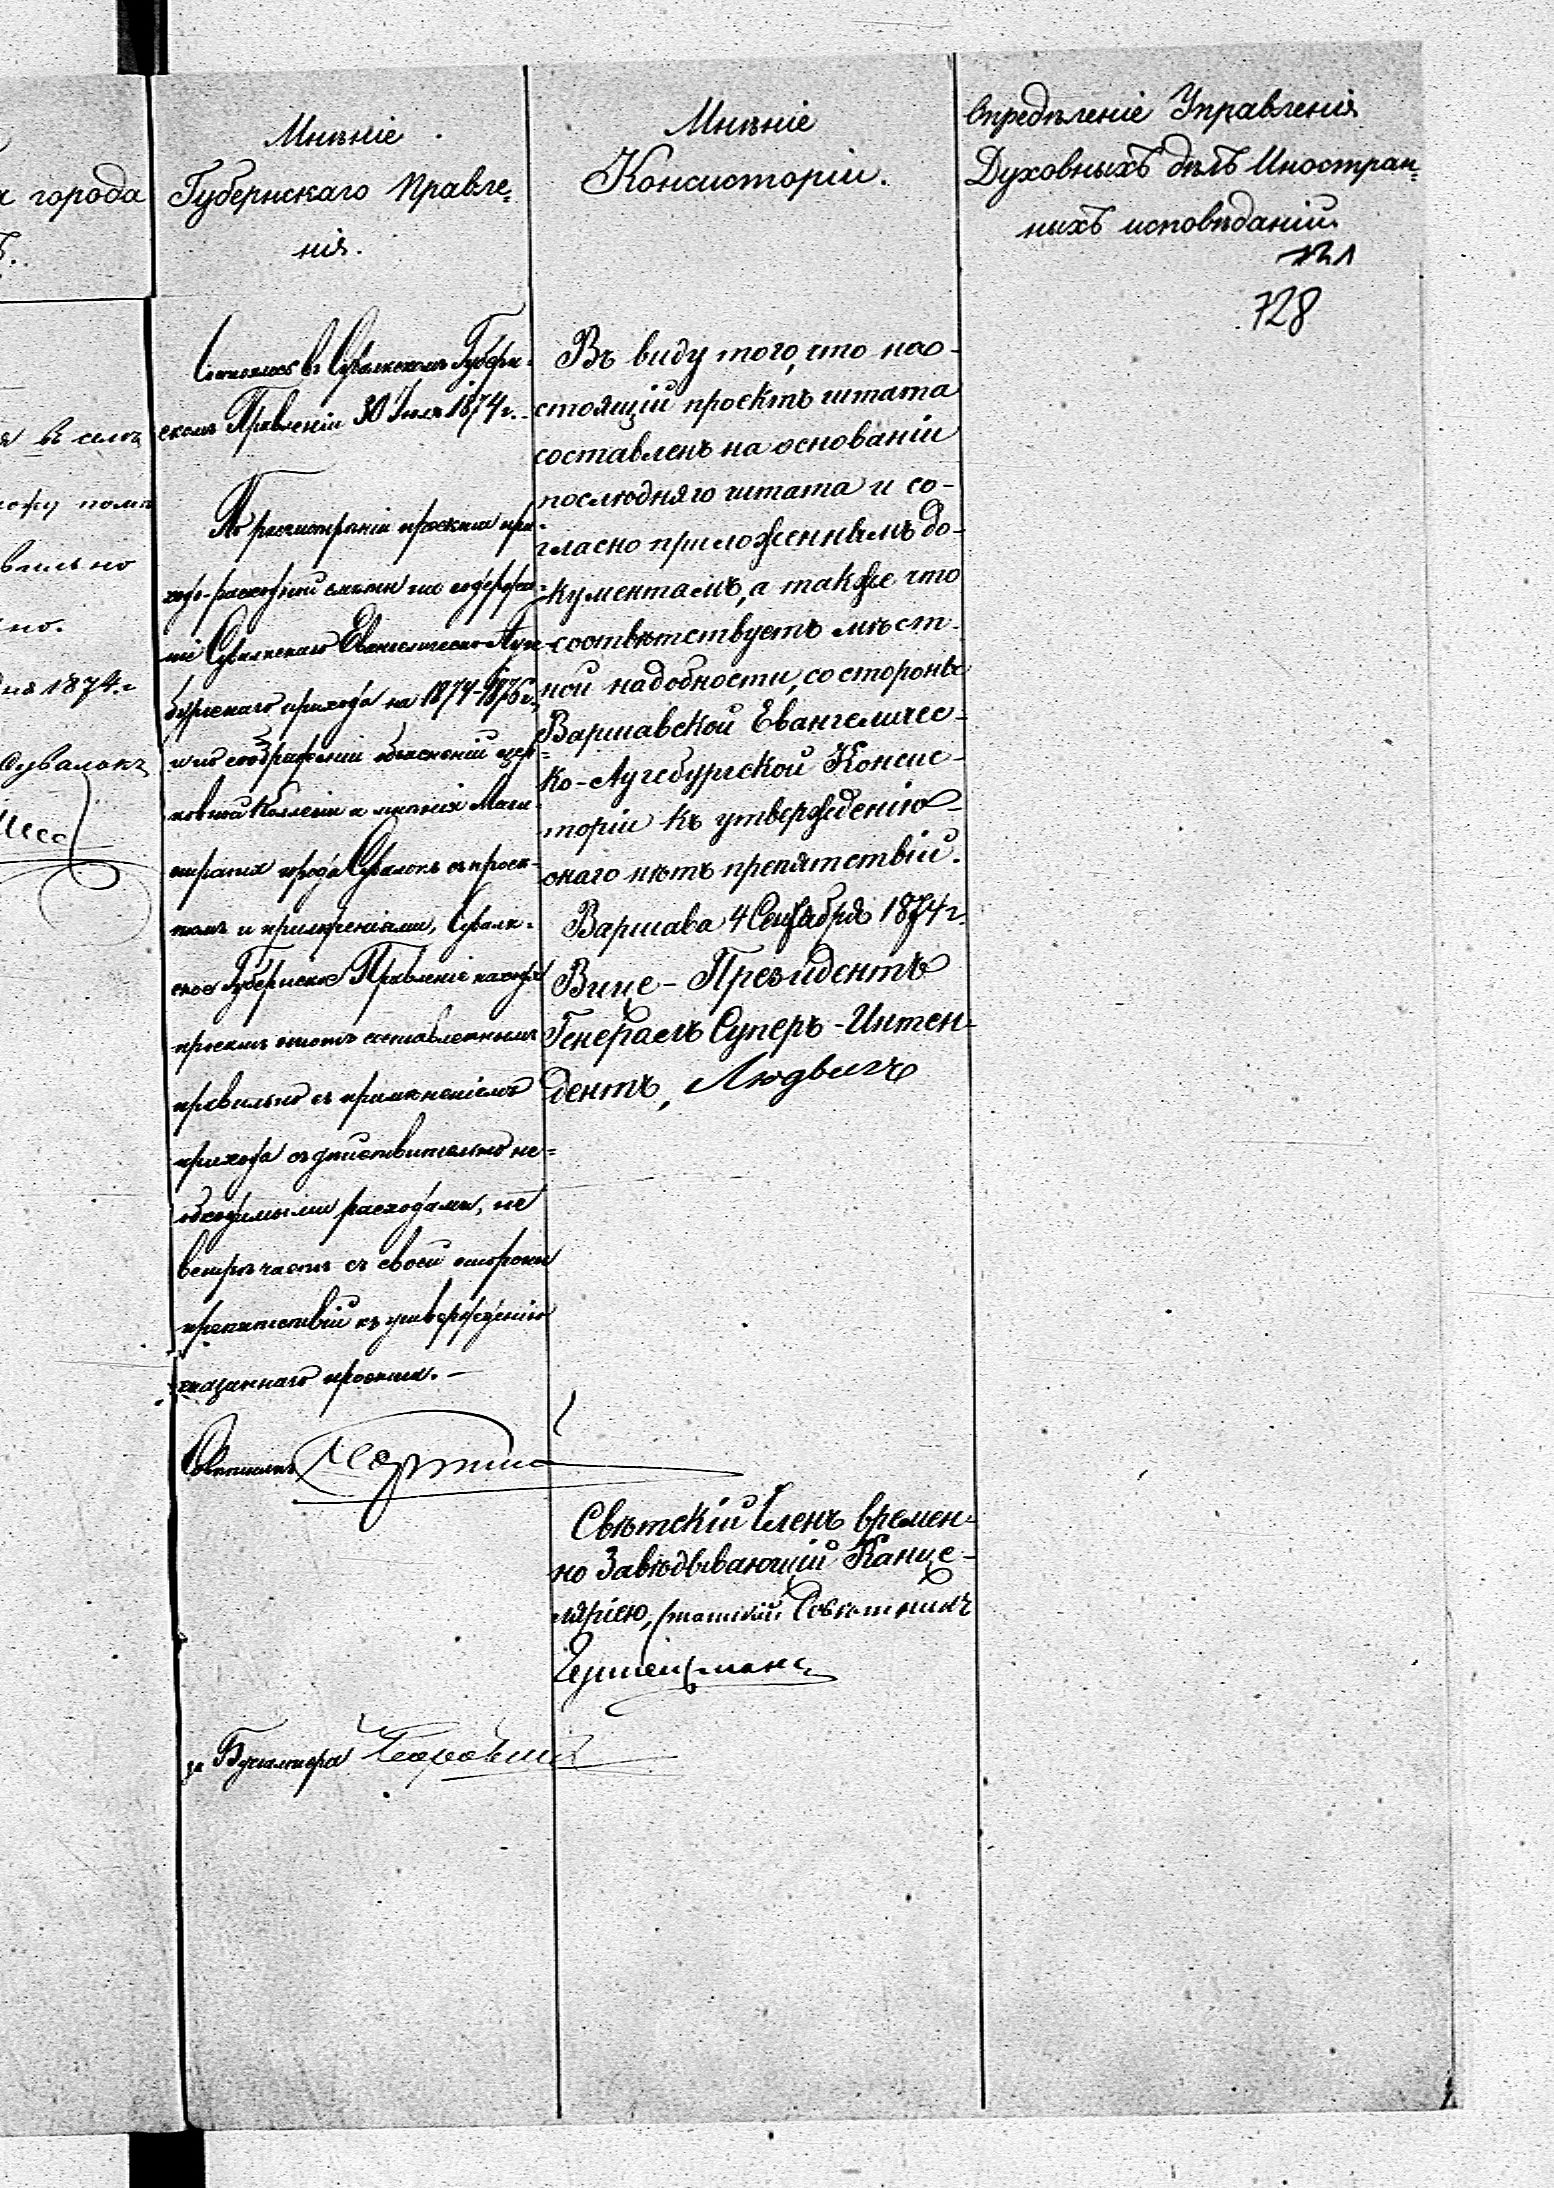 города
Мнѣніе
Губернскаго Правле=
нія.
Сувалкскомъ Губерн-
скомъ Правленіи 30 Іюля 1874 г.
По разсмотреніи проекта при-
ходо-расходной смѣты на содержа-
ніе Сувалкскаго Евангелическо-Аугс-
бургскаго прихода на 1874-1876 г.,
и по соображеніи объясненій цер-
ковной Коллегіи и мнѣнія Маги-
страта города Сувалокъ съ проек-
томъ и приложеніями, Сувалк-
ское Губернское Правленіе находя
проектъ этотъ составленнымъ
правильно съ примѣненіемъ
прихода съ дѣйствительно не=
обходимыми расходами, не
встрѣчаетъ съ своей стороны
препятствій къ утвержденію
сказаннаго проекта.—
Совѣтникъ
за Бухгалтера
Мнѣніе
Консисторіи.
Въ виду того, что нао-
стоящій проектъ штата
составленъ на основаніи
послѣдняго штата и со-
гласно приложеннымъ до-
кументамъ, а также что
соотвѣтствуетъ мѣст-
ной надобности, со стороны
Варшавской Евангеличес-
ко-Аугсбургской Консис-
торіи къ утвержденію
онаго нѣтъ препятствій.
Варшава 4 Сентября 1874 г.
Вице-Президентъ
Генералъ Суперъ-Интен-
дентъ, Людвигъ
Свѣтскій Членъ времен-
но Завѣдывающій Канце-
ляріею, Статскій Совѣтникъ
Опредѣленіе Управленія
Духовныхъ дѣлъ Иностран=
ныхъ исповѣданій.
728
вильно
но.
1874 г.
Сувалокъ